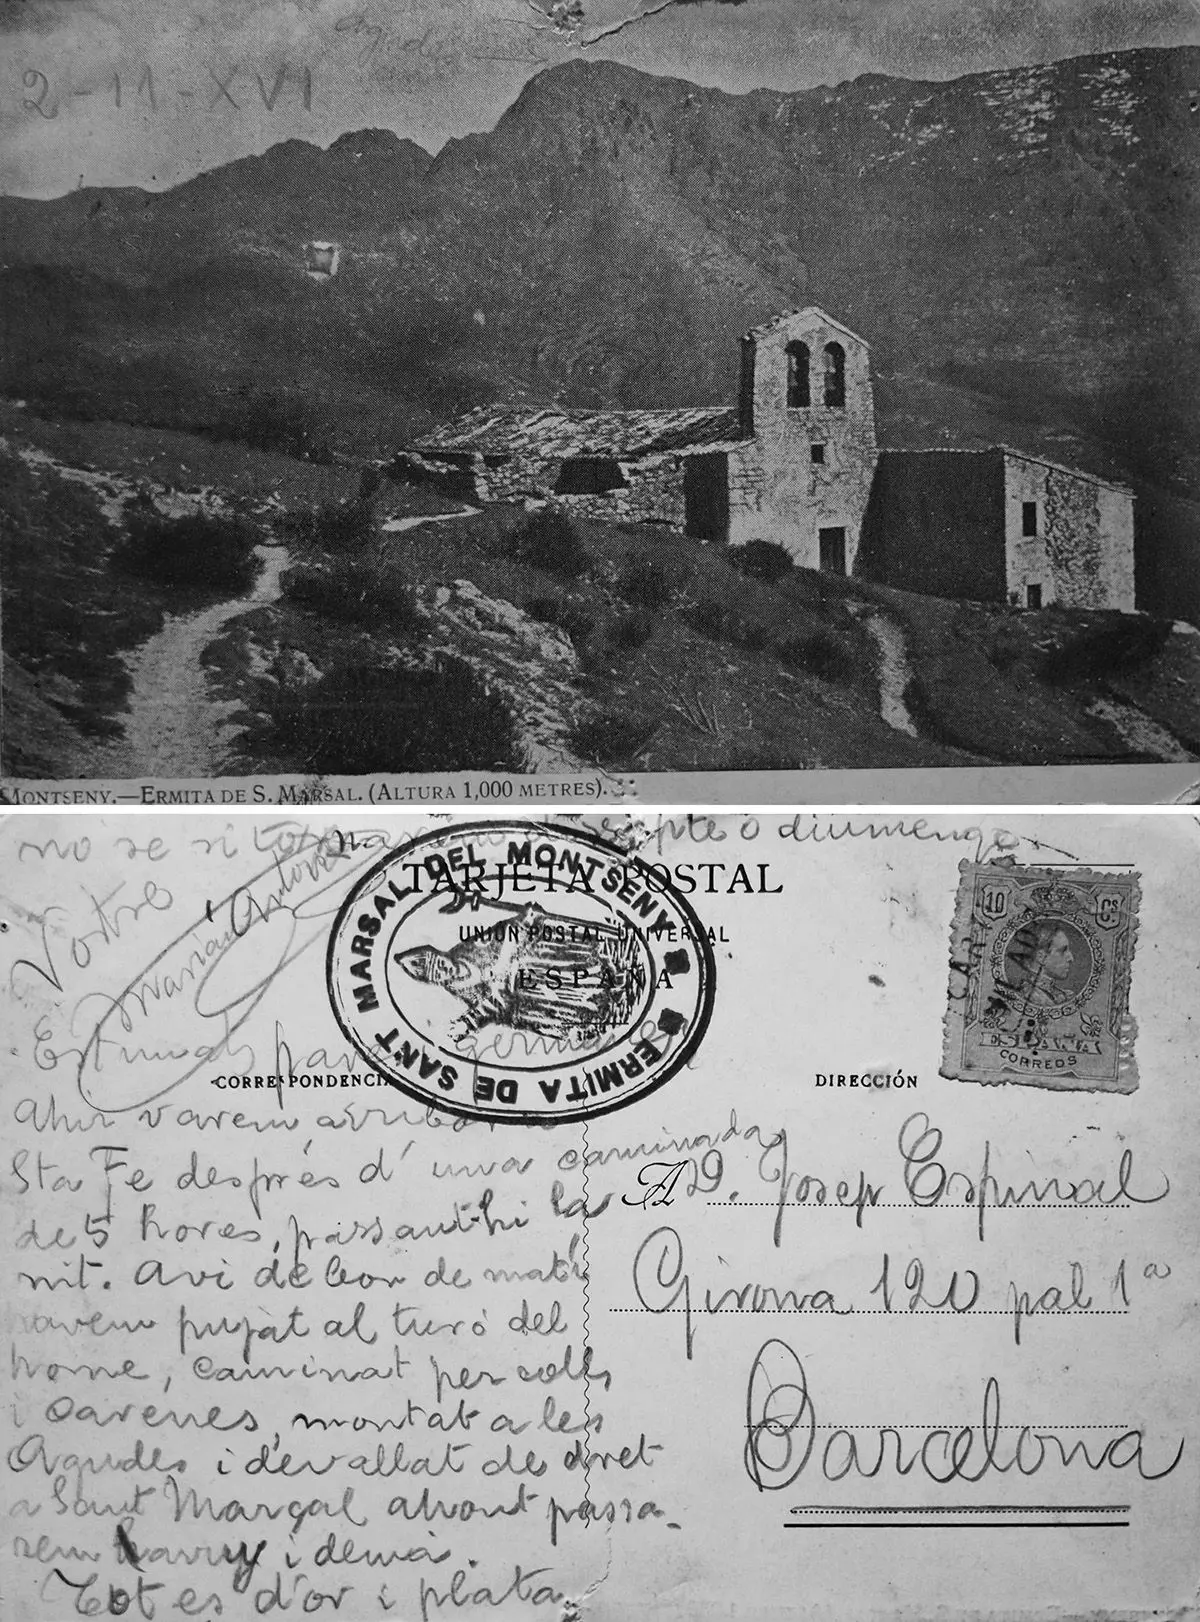 Agudes
2-11-XVI
MONTSENY.—ERMITA DE S. MARSAL. (ALTURA 1,000 METRES).
no se si tornarem dissapte o diumenge
Vostre
Marian
TARJETA POSTAL
UNIÓN POSTAL UNIVERSAL
ESPAÑA
ERMITA DE SANT MARSAL DEL MONTSENY
10 Cs
CORREOS
CORRESPONDENCIA
DIRECCIÓN
Estimats pares i germans
Ahir varem arribar a
Sta Fe després d'una caminada
de 5 hores, passant-hi la
nit. Avi de bon de matí
havem pujat al turó del
home, caminat per colls
i carenes, montat a les
Agudes i devallat de dret
a Sant Marçal ahont passa-
rem havuy i demà.
Tot es d'or i plata
A D. Josep Espinal
Girona 120 pal 1ª
Barcelona